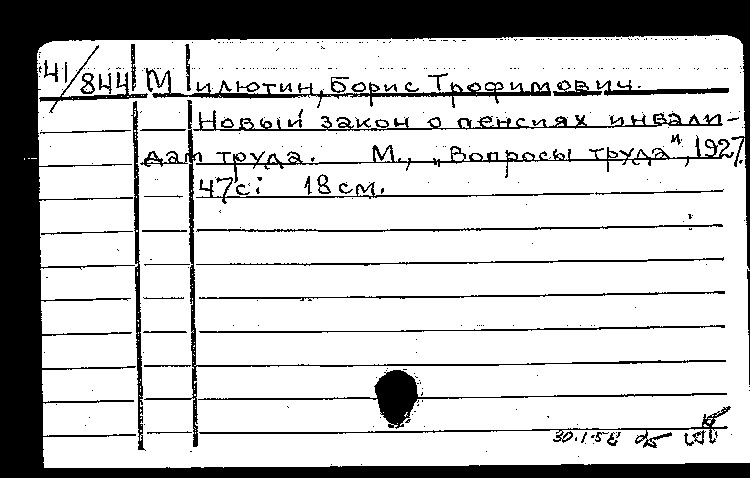 41/844 Милютин, Борис Трофимович.
Новый закон о пенсиях инвали-
дам труда. М., „Вопросы труда", 1927.
47с; 18см.
30.1.58